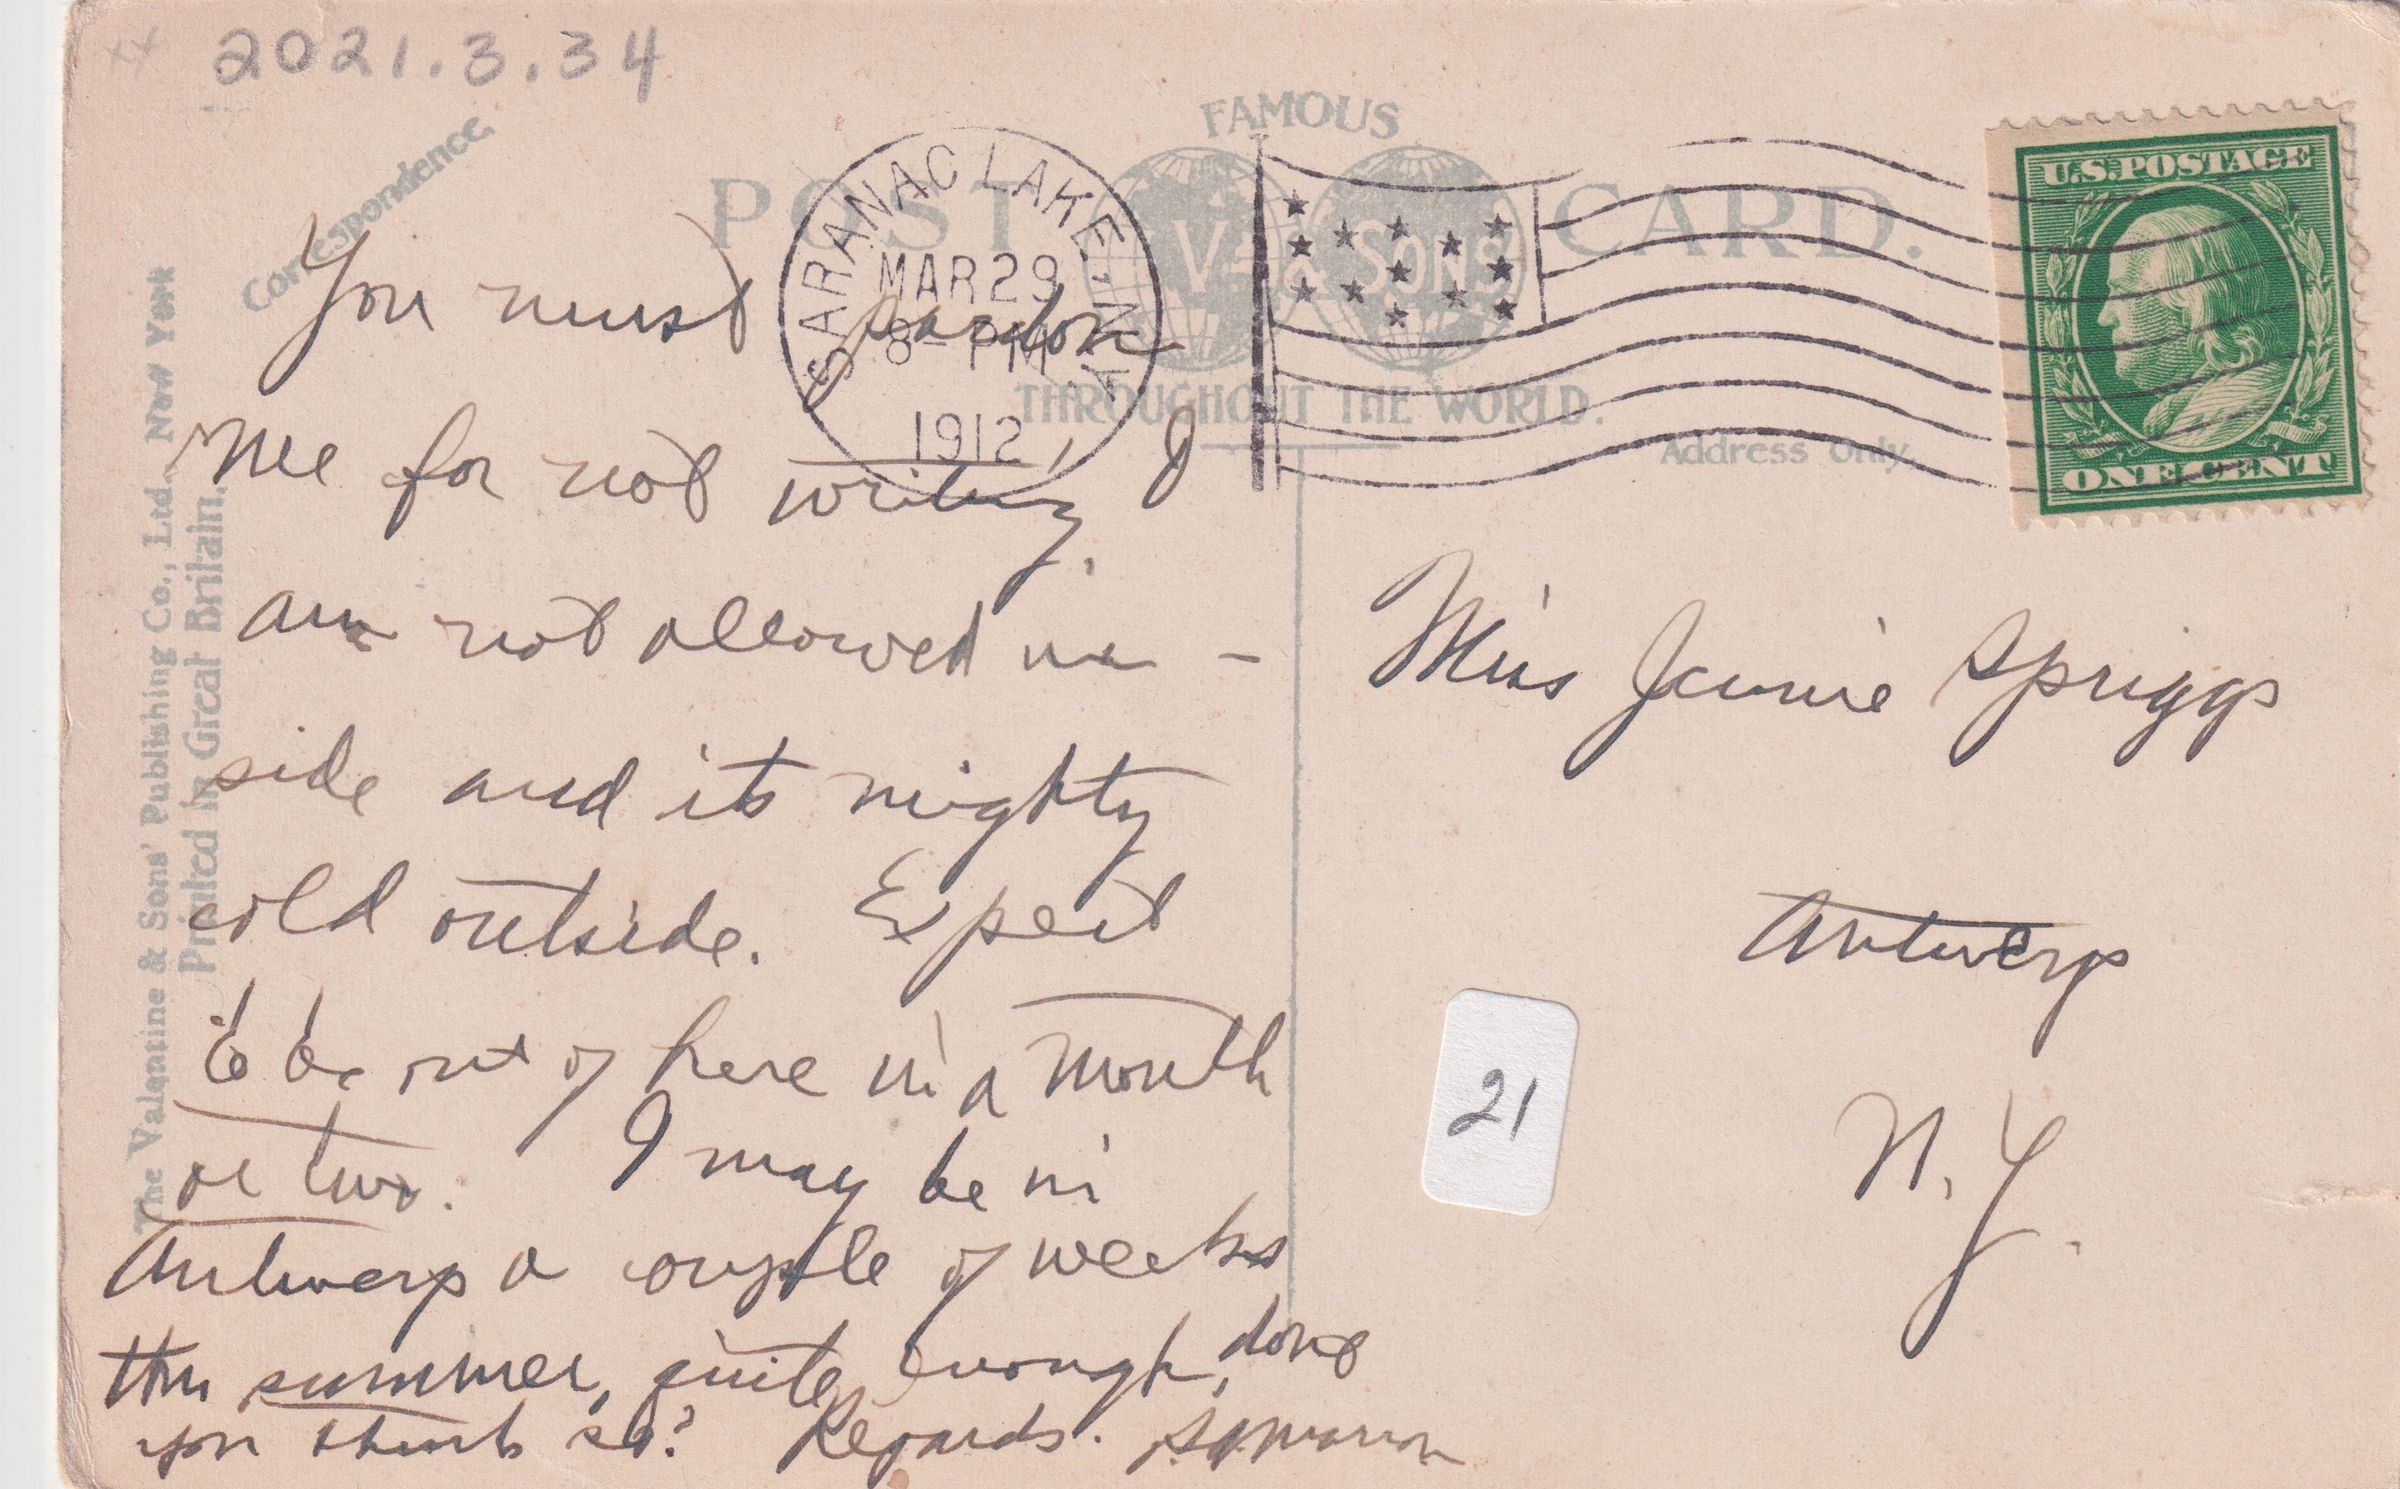 2021.3.34
Correspondence.
FAMOUS
POST CARD.
V. & SONS
THROUGHOUT THE WORLD.
Address Only.
SARANAC LAKE, N.Y.
MAR 29
8 - PM
1912
U.S. POSTAGE
ONE CENT
The Valentine & Sons' Publishing Co., Ltd., New York
Printed in Great Britain.
You must pardon
me for not writing, I
am not allowed in -
side and its mighty
cold outside. Expect
to be out of here in a month
or two. I may be in
Antwerp a couple of weeks
this summer, quite enough, dont
you think so? Regards.
Miss Jennie Spriggs
Antwerp
N.Y.
21